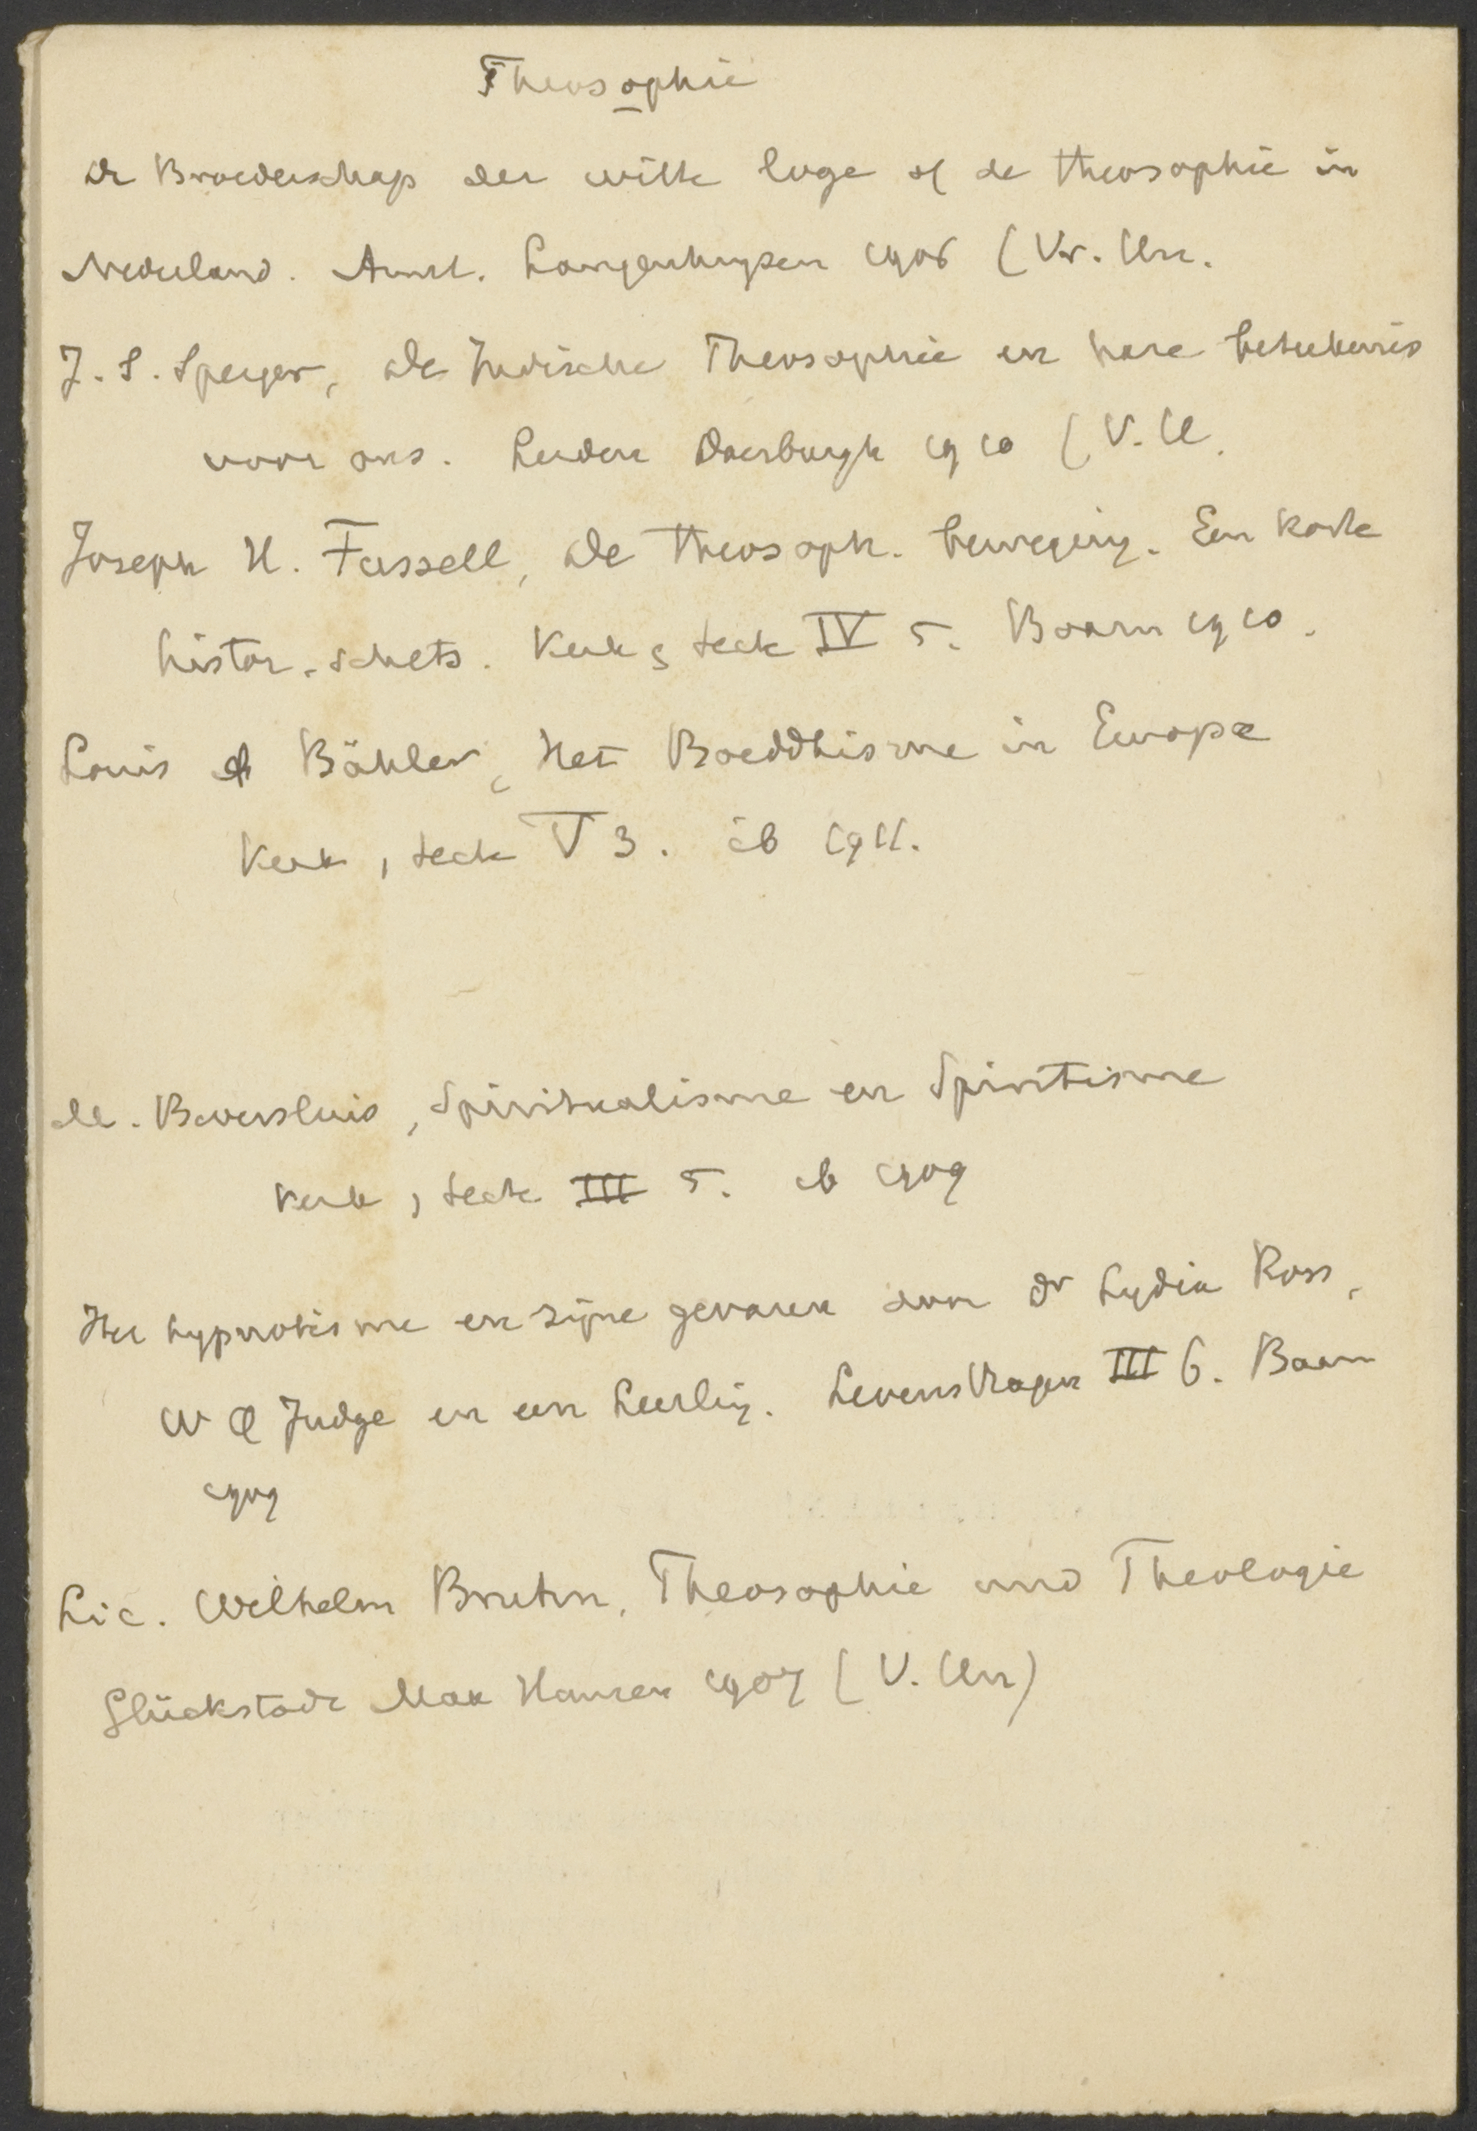 Theosophie
De Broederschap der witte loge of de theosophie in
Nederland. Amst. Langenhuysen 1906 (Vr. Un.
J. S. Speyer, De Indische Theosophie en hare beteekenis
voor ons. Leiden Doesburgh 1910 (V. U.
Joseph H. Fussell, De theosoph. beweging. Een korte
histor. schets. Kerk, secte IV 5. Baarn 1910.
Louis A Bähler, Het Boeddhisme in Europa
Kerk, secte V 3. ib 1911.
M. Beversluis, Spiritualisme en Spiritisme
Kerk, secte III 5. ib 1909
Het hypnotisme en zijne gevaren door Dr Lydia Ross,
W Q Judge en een Leerling. Levensvragen III 6. Baarn
1909
Lic. Wilhelm Bruhn, Theosophie und Theologie
Glückstadt Max Hansen 1907 (V. Un)